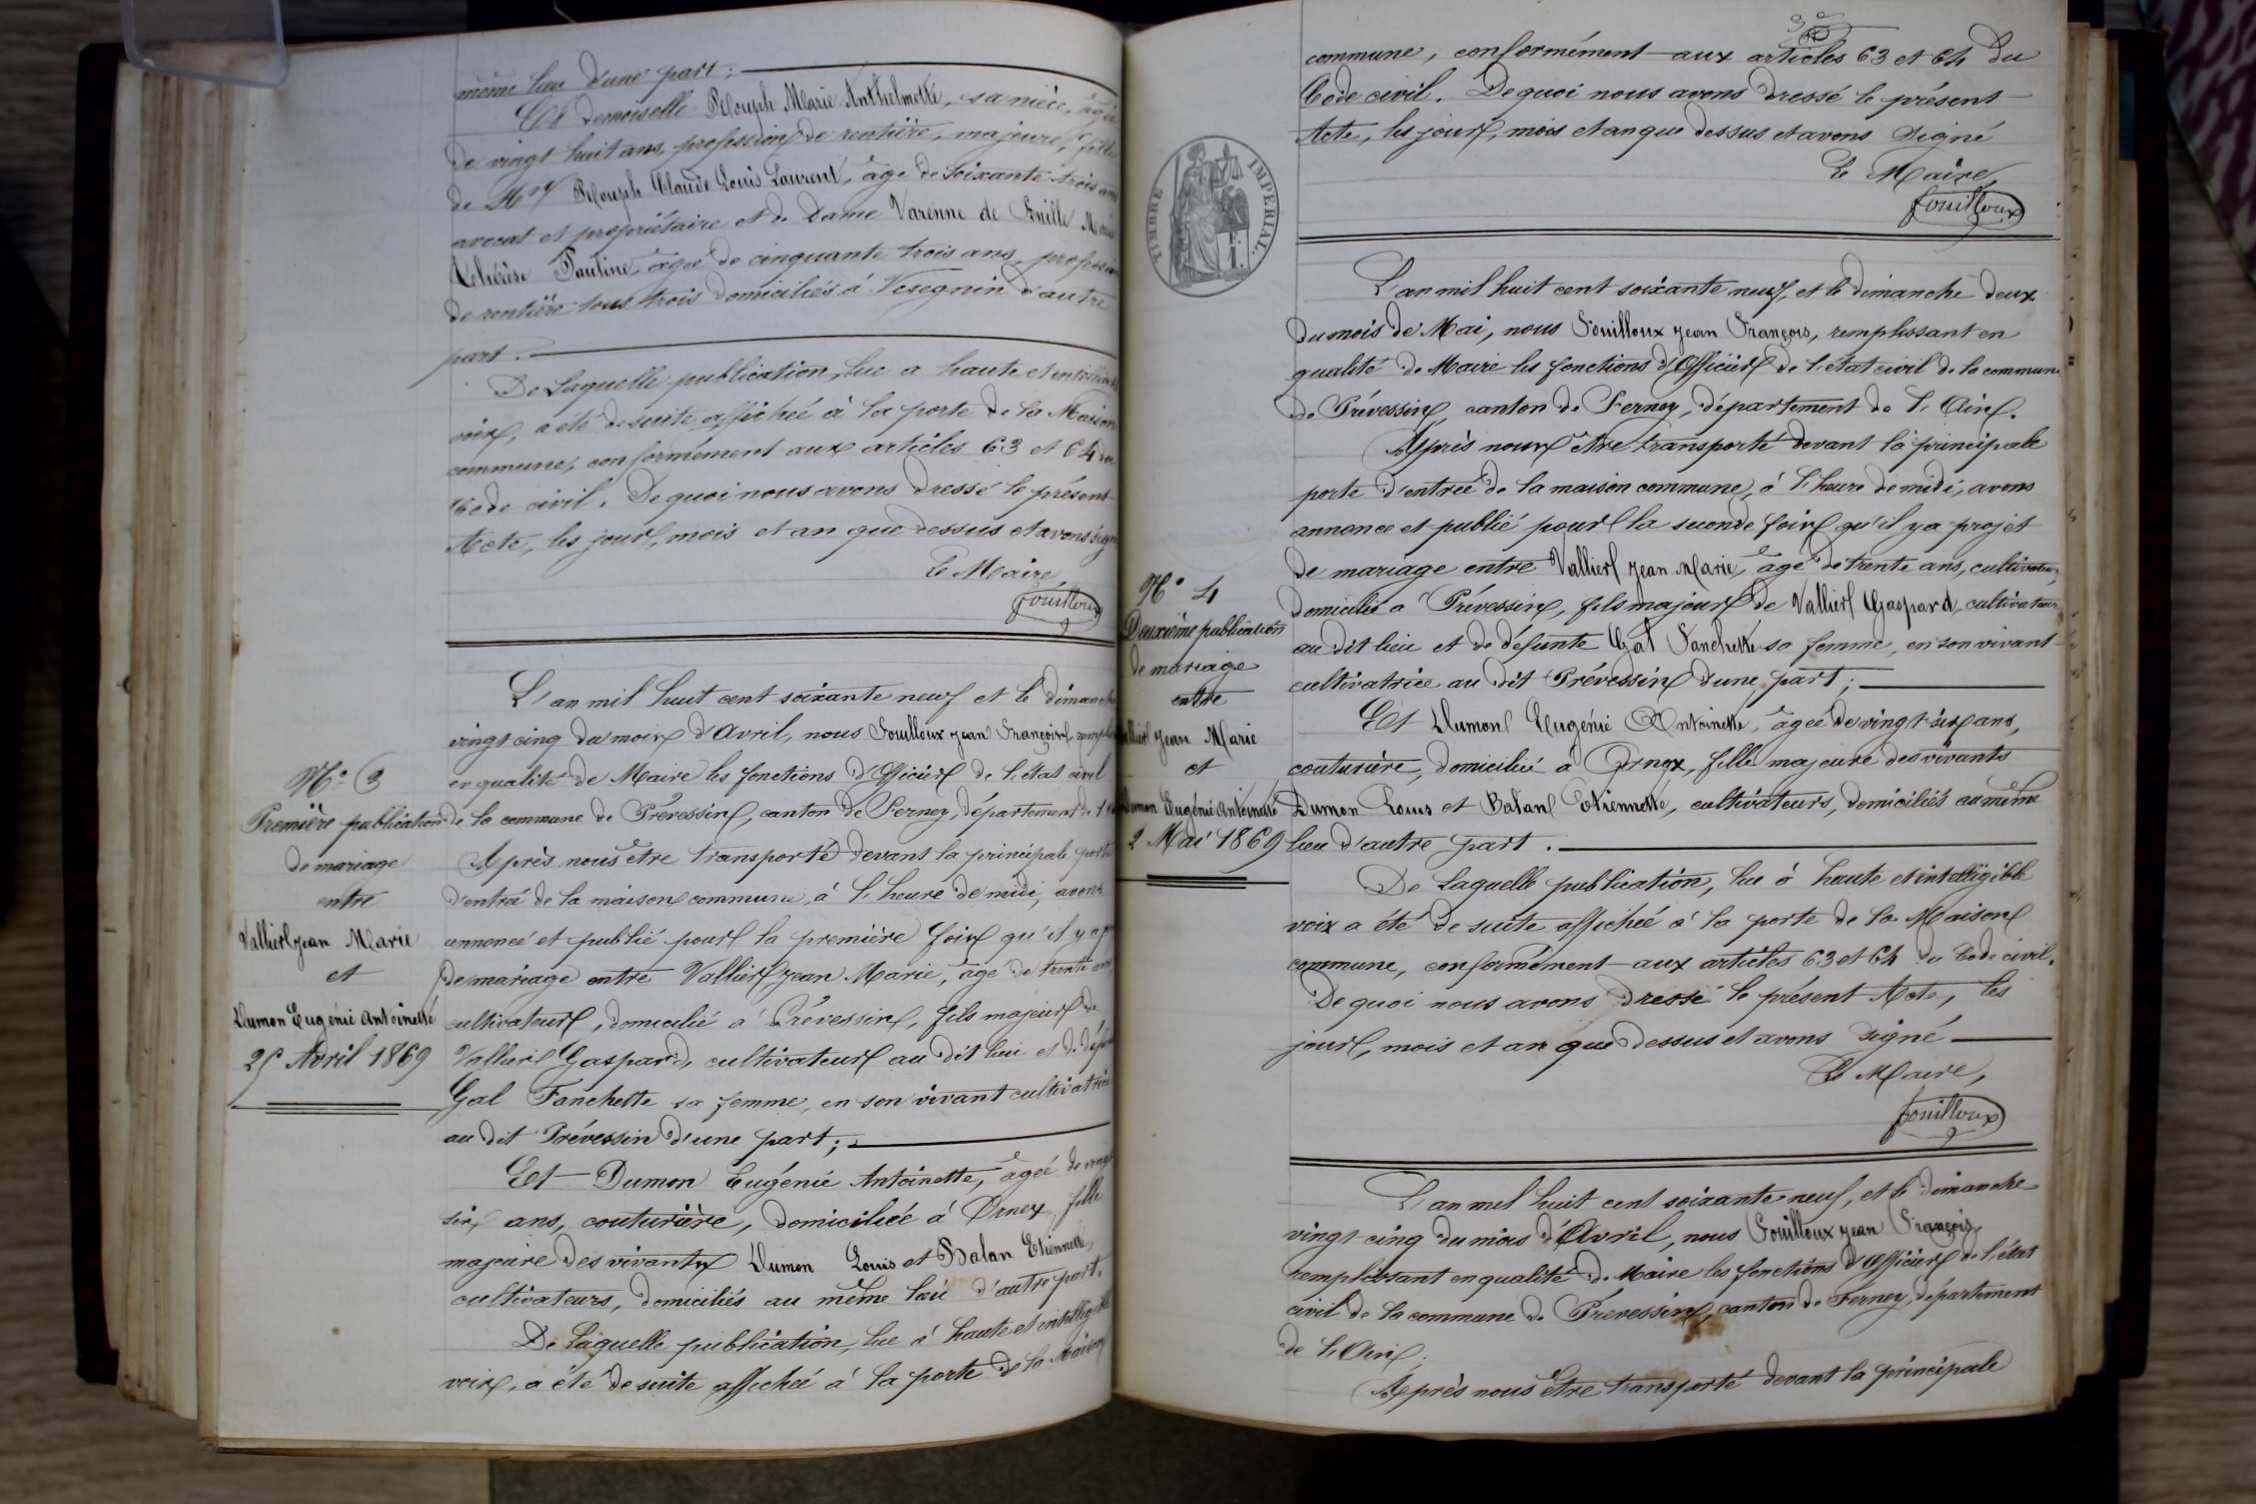 même lieu d'une part;
Et demoiselle Rouph Marie Anthelmette, sa nièce, âgée
de vingt huit ans, profession de rentière, majeure, fille
de Mr Rouph Claude Louis Laurent, âgé de soixante trois ans
avocat et propriétaire et de Dame Varenne de Marie
Thérèse Pauline âgée de cinquante trois ans, profession
de rentière tous trois domiciliés à Vesegnin d'autre
part.
De Laquelle publication, lue a haute et intelligible
voix, a été de suite affichée à la porte de la Maison
commune, conformément aux articles 63 et 64 du
Code civil. De quoi nous avons dressé le présent
Acte, les jour, mois et an que dessus et avons signé
Le Maire,
fouilloux
N° 3
Première publication
de mariage
entre
Vallier Jean Marie
et
Dumon Eugénie Antoinette
25 Avril 1869
L'an mil huit cent soixante neuf et le dimanche
vingt cinq du mois d'Avril, nous Fouilloux Jean François
en qualité de Maire les fonctions d'Officier de l'état civil
de la commune de Prévessin, canton de Ferney, département de l'Ain
Après nous être transporté devant la principale porte
d'entrée de la maison commune, à l'heure de midi, avons
annoncé et publié pour la première fois qu'il y a
de mariage entre Vallier Jean Marie, âgé de trente ans
cultivateur, domicilié à Prévessin, fils majeur de
Vallier Gaspard, cultivateur au dit lieu et de
Gal Fanchette sa femme, en son vivant cultivatrice
au dit Prévessin d'une part;
Et Dumon Eugénie Antoinette, âgée de vingt
six ans, couturière, domiciliée à Ornex, fille
majeure des vivants Dumon Louis et Balan Etiennette,
cultivateurs, domiciliés au même lieu d'autre part.
De Laquelle publication, lue à haute et intelligible
voix, a été de suite affichée à la porte de la Maison
commune, conformément aux articles 63 et 64 du
Code civil. De quoi nous avons dressé le présent
Acte, les jour, mois et an que dessus et avons signé
Le Maire,
fouilloux
TIMBRE IMPERIAL.
N° 4
Deuxième publication
de mariage
entre
Vallier Jean Marie
et
Dumon Eugénie Antoinette
2 Mai 1869
L'an mil huit cent soixante neuf, et le dimanche deux
du mois de Mai, nous Fouilloux Jean François, remplissant en
qualité de Maire les fonctions d'Officier de l'état civil de la commune
de Prévessin, canton de Ferney, département de l'Ain.
Après nous être transporté devant la principale
porte d'entrée de la maison commune, à l'heure de midi, avons
annoncé et publié pour la seconde fois qu'il y a projet
de mariage entre Vallier Jean Marie, âgé de trente ans, cultivateur,
domicilié à Prévessin, fils majeur de Vallier Gaspard cultivateur
au dit lieu et de défunte Gal Fanchette sa femme, en son vivant
cultivatrice au dit Prévessin d'une part;
Et Dumon Eugénie Antoinette, âgée de vingt-six ans,
couturière, domiciliée à Ornex, fille majeure des vivants
Dumon Louis et Balan Etiennette, cultivateurs, domiciliés au même
lieu d'autre part.
De Laquelle publication, lue à haute et intelligible
voix a été de suite affichée à la porte de la Maison
commune, conformément aux articles 63 et 64 du Code civil.
De quoi nous avons dressé le présent Acte, les
jour, mois et an que dessus et avons signé
Le Maire,
fouilloux
L'an mil huit cent soixante neuf, et le dimanche
vingt-cinq du mois d'Avril, nous Fouilloux Jean François,
remplissant en qualité de Maire les fonctions d'Officier de l'état
civil de la commune de Prévessin, canton de Ferney, département
de l'Ain;
Après nous être transporté devant la principale